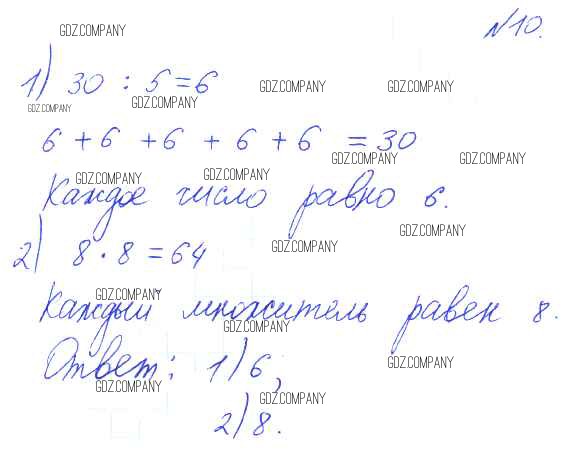 GDZ.COMPANY
№10.
1) 30 : 5 = 6
GDZ.COMPANY GDZ.COMPANY
GDZ.COMPANY GDZ.COMPANY
6 + 6 + 6 + 6 + 6 = 30
GDZ.COMPANY GDZ.COMPANY
GDZ.COMPANY GDZ.COMPANY
Каждое число равно 6.
GDZ.COMPANY
2) 8 · 8 = 64
GDZ.COMPANY
GDZ.COMPANY
Каждый множитель равен 8.
GDZ.COMPANY
Ответ: 1) 6;
GDZ.COMPANY
GDZ.COMPANY
GDZ.COMPANY
2) 8.